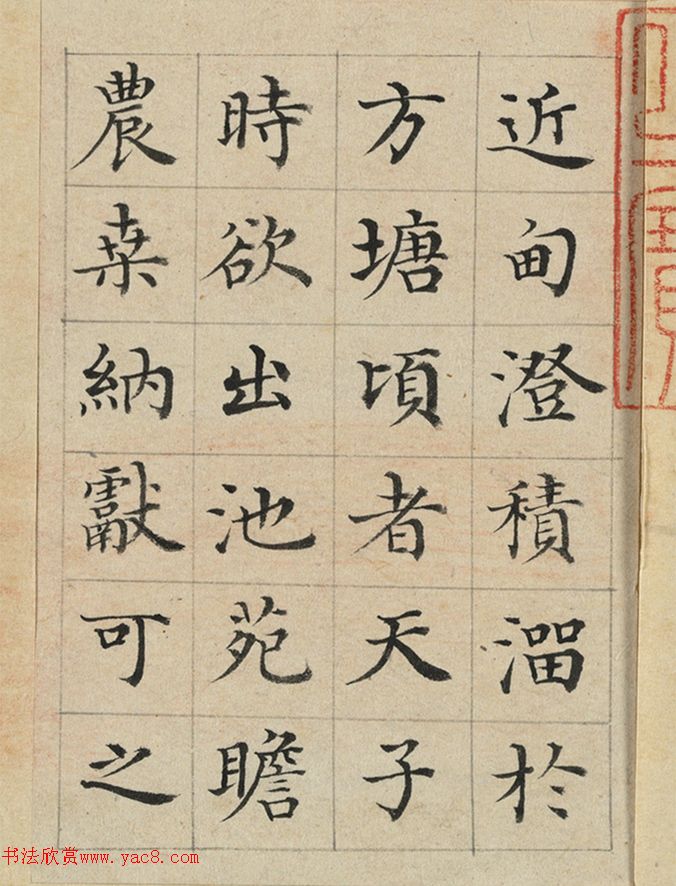 近甸澄積溜於
方塘頃者天子
時欲出池苑瞻
農桒納獻可之
书法欣赏www.yac8.com